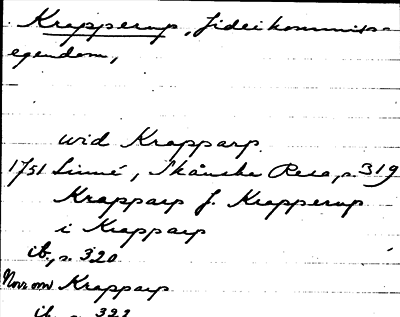 Krapperup, fideikommiss-
egendom,
wid Krapparp
1751 Linné, Skånska Resa, s. 319
Krapparp f. Krapperup
i Krapparp
ib., s. 320
Norr om Krapparp
ib. s. 322